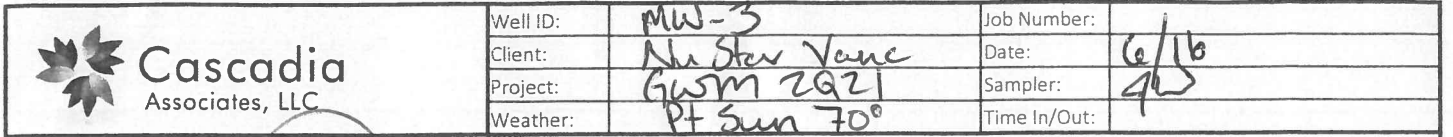 Cascadia
Associates, LLC
Well ID: MW-3 Job Number:
Client: NuStar Vanc Date: 6/16
Project: GWM 2Q21 Sampler:
Weather: Pt Sun 70° Time In/Out: